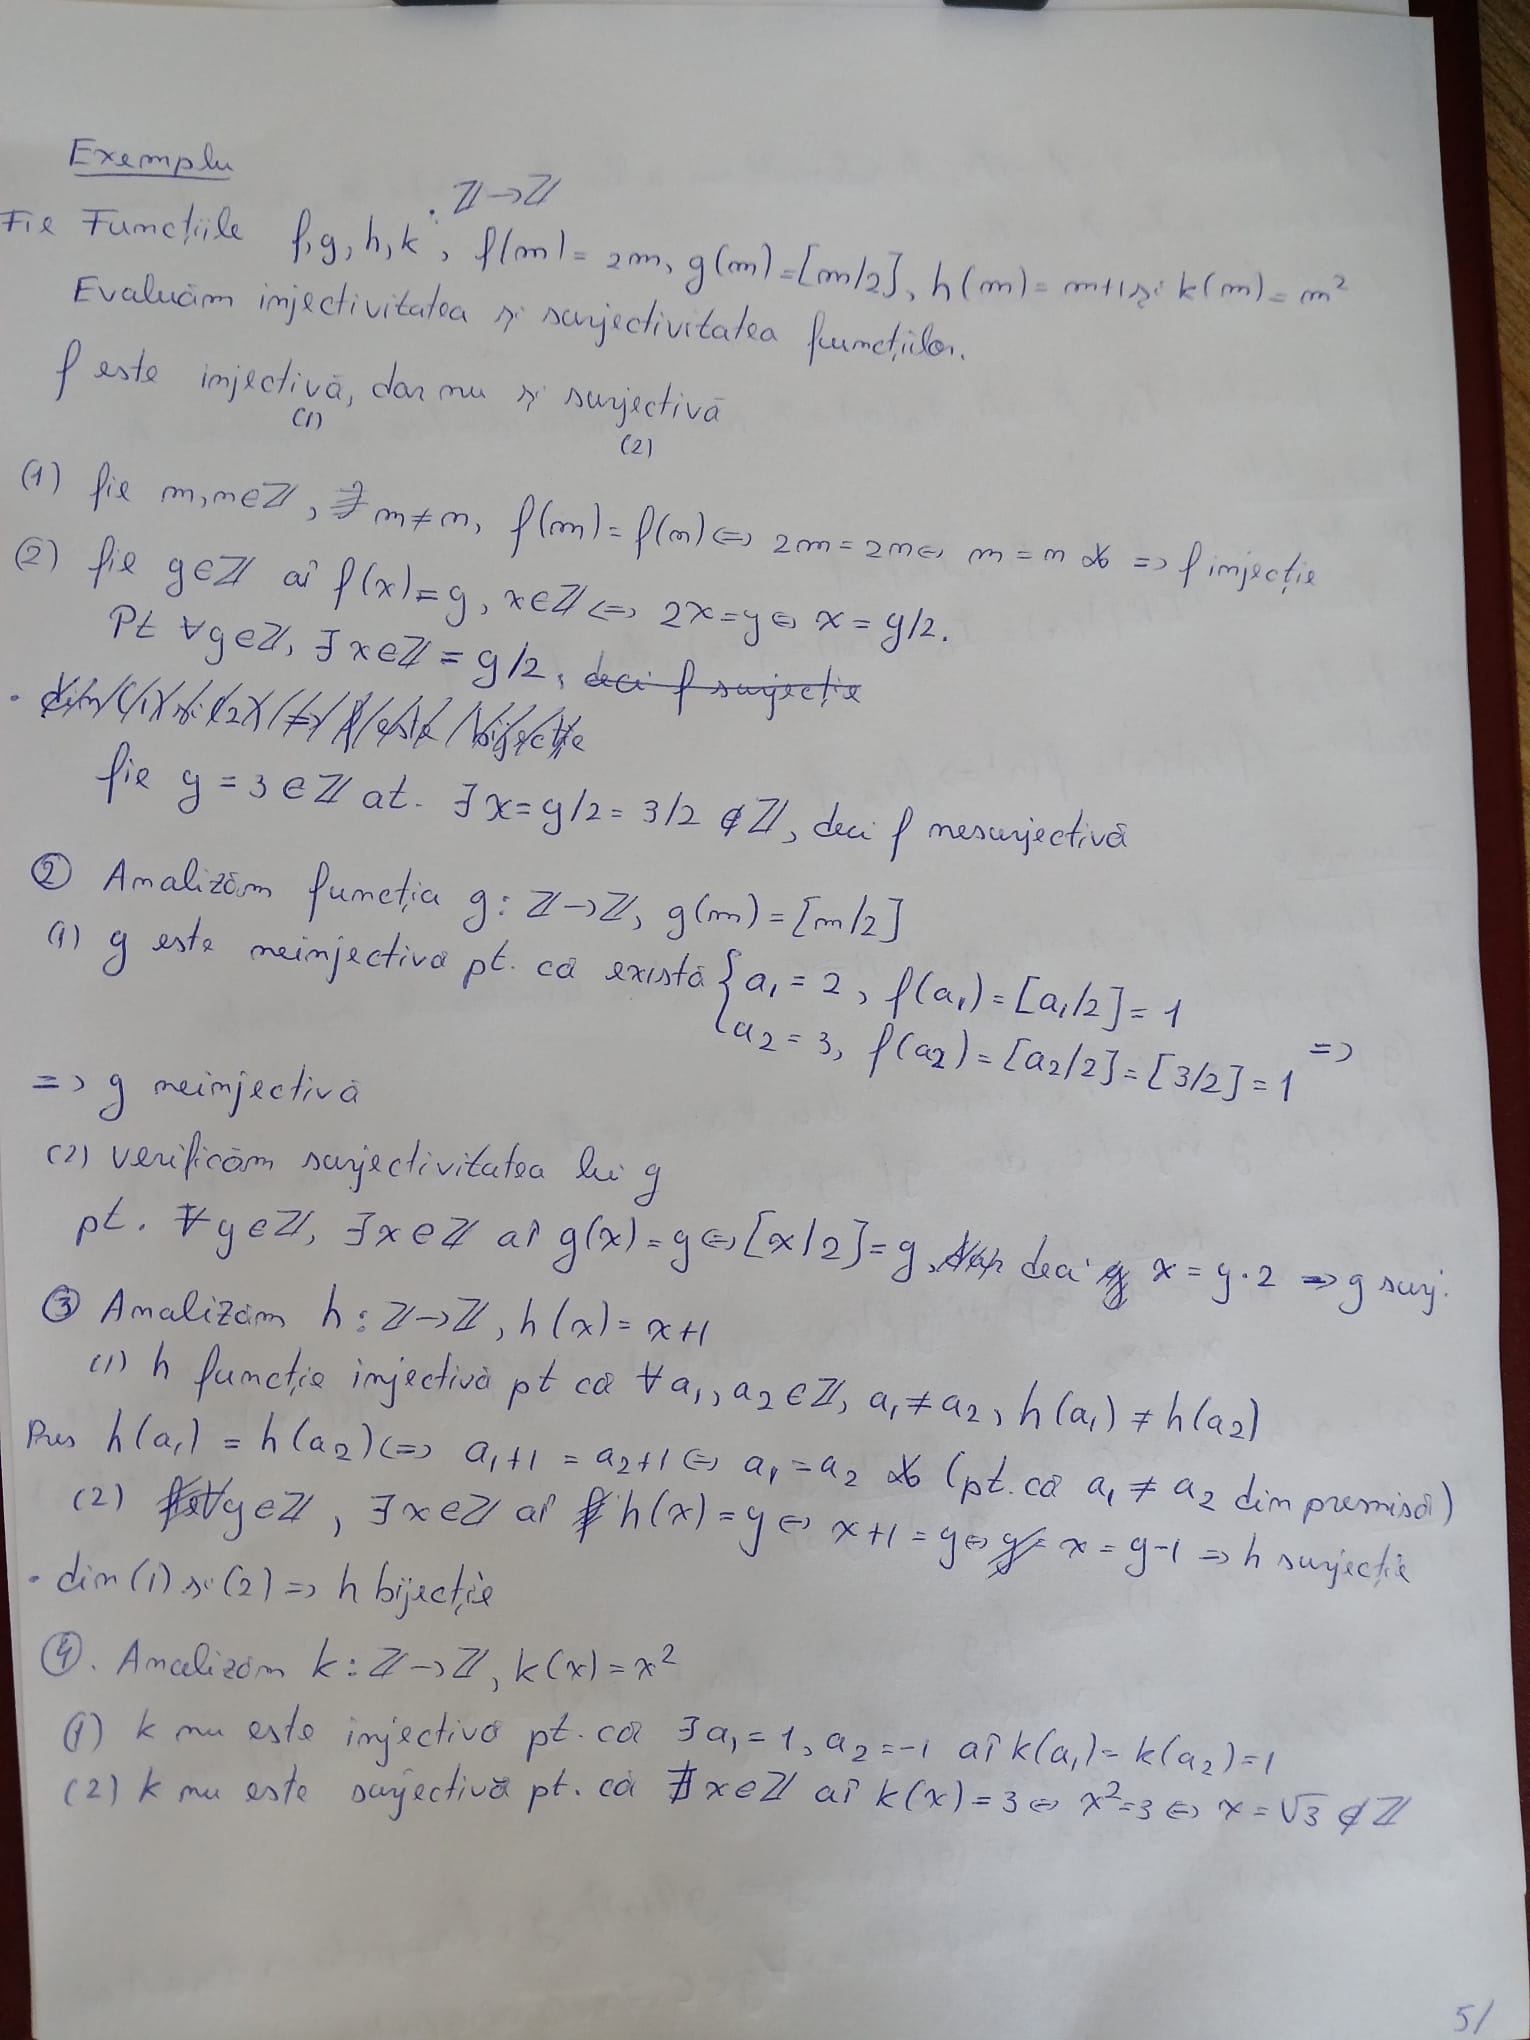 Exemplu
: ℤ→ℤ
Fie Funcțiile f,g,h,k, f(m)= 2m, g(m)=[m/2], h(m)= m+1 și k(m)=m²
Evaluăm injectivitatea și surjectivitatea funcțiilor.
f este injectivă, dar nu și surjectivă
(1) (2)
(1) fie m,n∈ℤ, m≠n, f(m)=f(n)⇔ 2m=2n⇔ m=n ⇒ f injecție
(2) fie y∈ℤ aî f(x)=y, x∈ℤ⇔ 2x=y⇔ x=y/2.
Pt ∀y∈ℤ, ∃x∈ℤ = y/2, deci f surjecție
• din (1) și (2) ⇒ f este bijecție
fie y=3∈ℤ at. ∃x=y/2=3/2 ∉ℤ, deci f nesurjectivă
② Analizăm funcția g: ℤ→ℤ, g(m)=[m/2]
(1) g este neinjectivă pt. că există { a₁=2, f(a₁)=[a₁/2]=1
a₂=3, f(a₂)=[a₂/2]=[3/2]=1 ⇒
⇒ g neinjectivă
(2) verificăm surjectivitatea lui g
pt. ∀y∈ℤ, ∃x∈ℤ aî g(x)=y⇔[x/2]=y, deci x=y·2 ⇒ g surj.
③ Analizăm h:ℤ→ℤ, h(x)=x+1
(1) h funcție injectivă pt că ∀a₁, a₂∈ℤ, a₁≠a₂, h(a₁)≠h(a₂)
Pres h(a₁)=h(a₂)⇔ a₁+1=a₂+1⇔ a₁=a₂ (pt. că a₁≠a₂ din premisă)
(2) ∀y∈ℤ, ∃x∈ℤ aî h(x)=y⇔ x+1=y⇔ x=y-1 ⇒ h surjecție
• din (1) și (2) ⇒ h bijecție
④. Analizăm k: ℤ→ℤ, k(x)=x²
(1) k nu este injectivă pt. că ∃a₁=1, a₂=-1 aî k(a₁)=k(a₂)=1
(2) k nu este surjectivă pt. că ∄x∈ℤ aî k(x)=3⇔ x²=3⇔ x=√3∉ℤ
5/